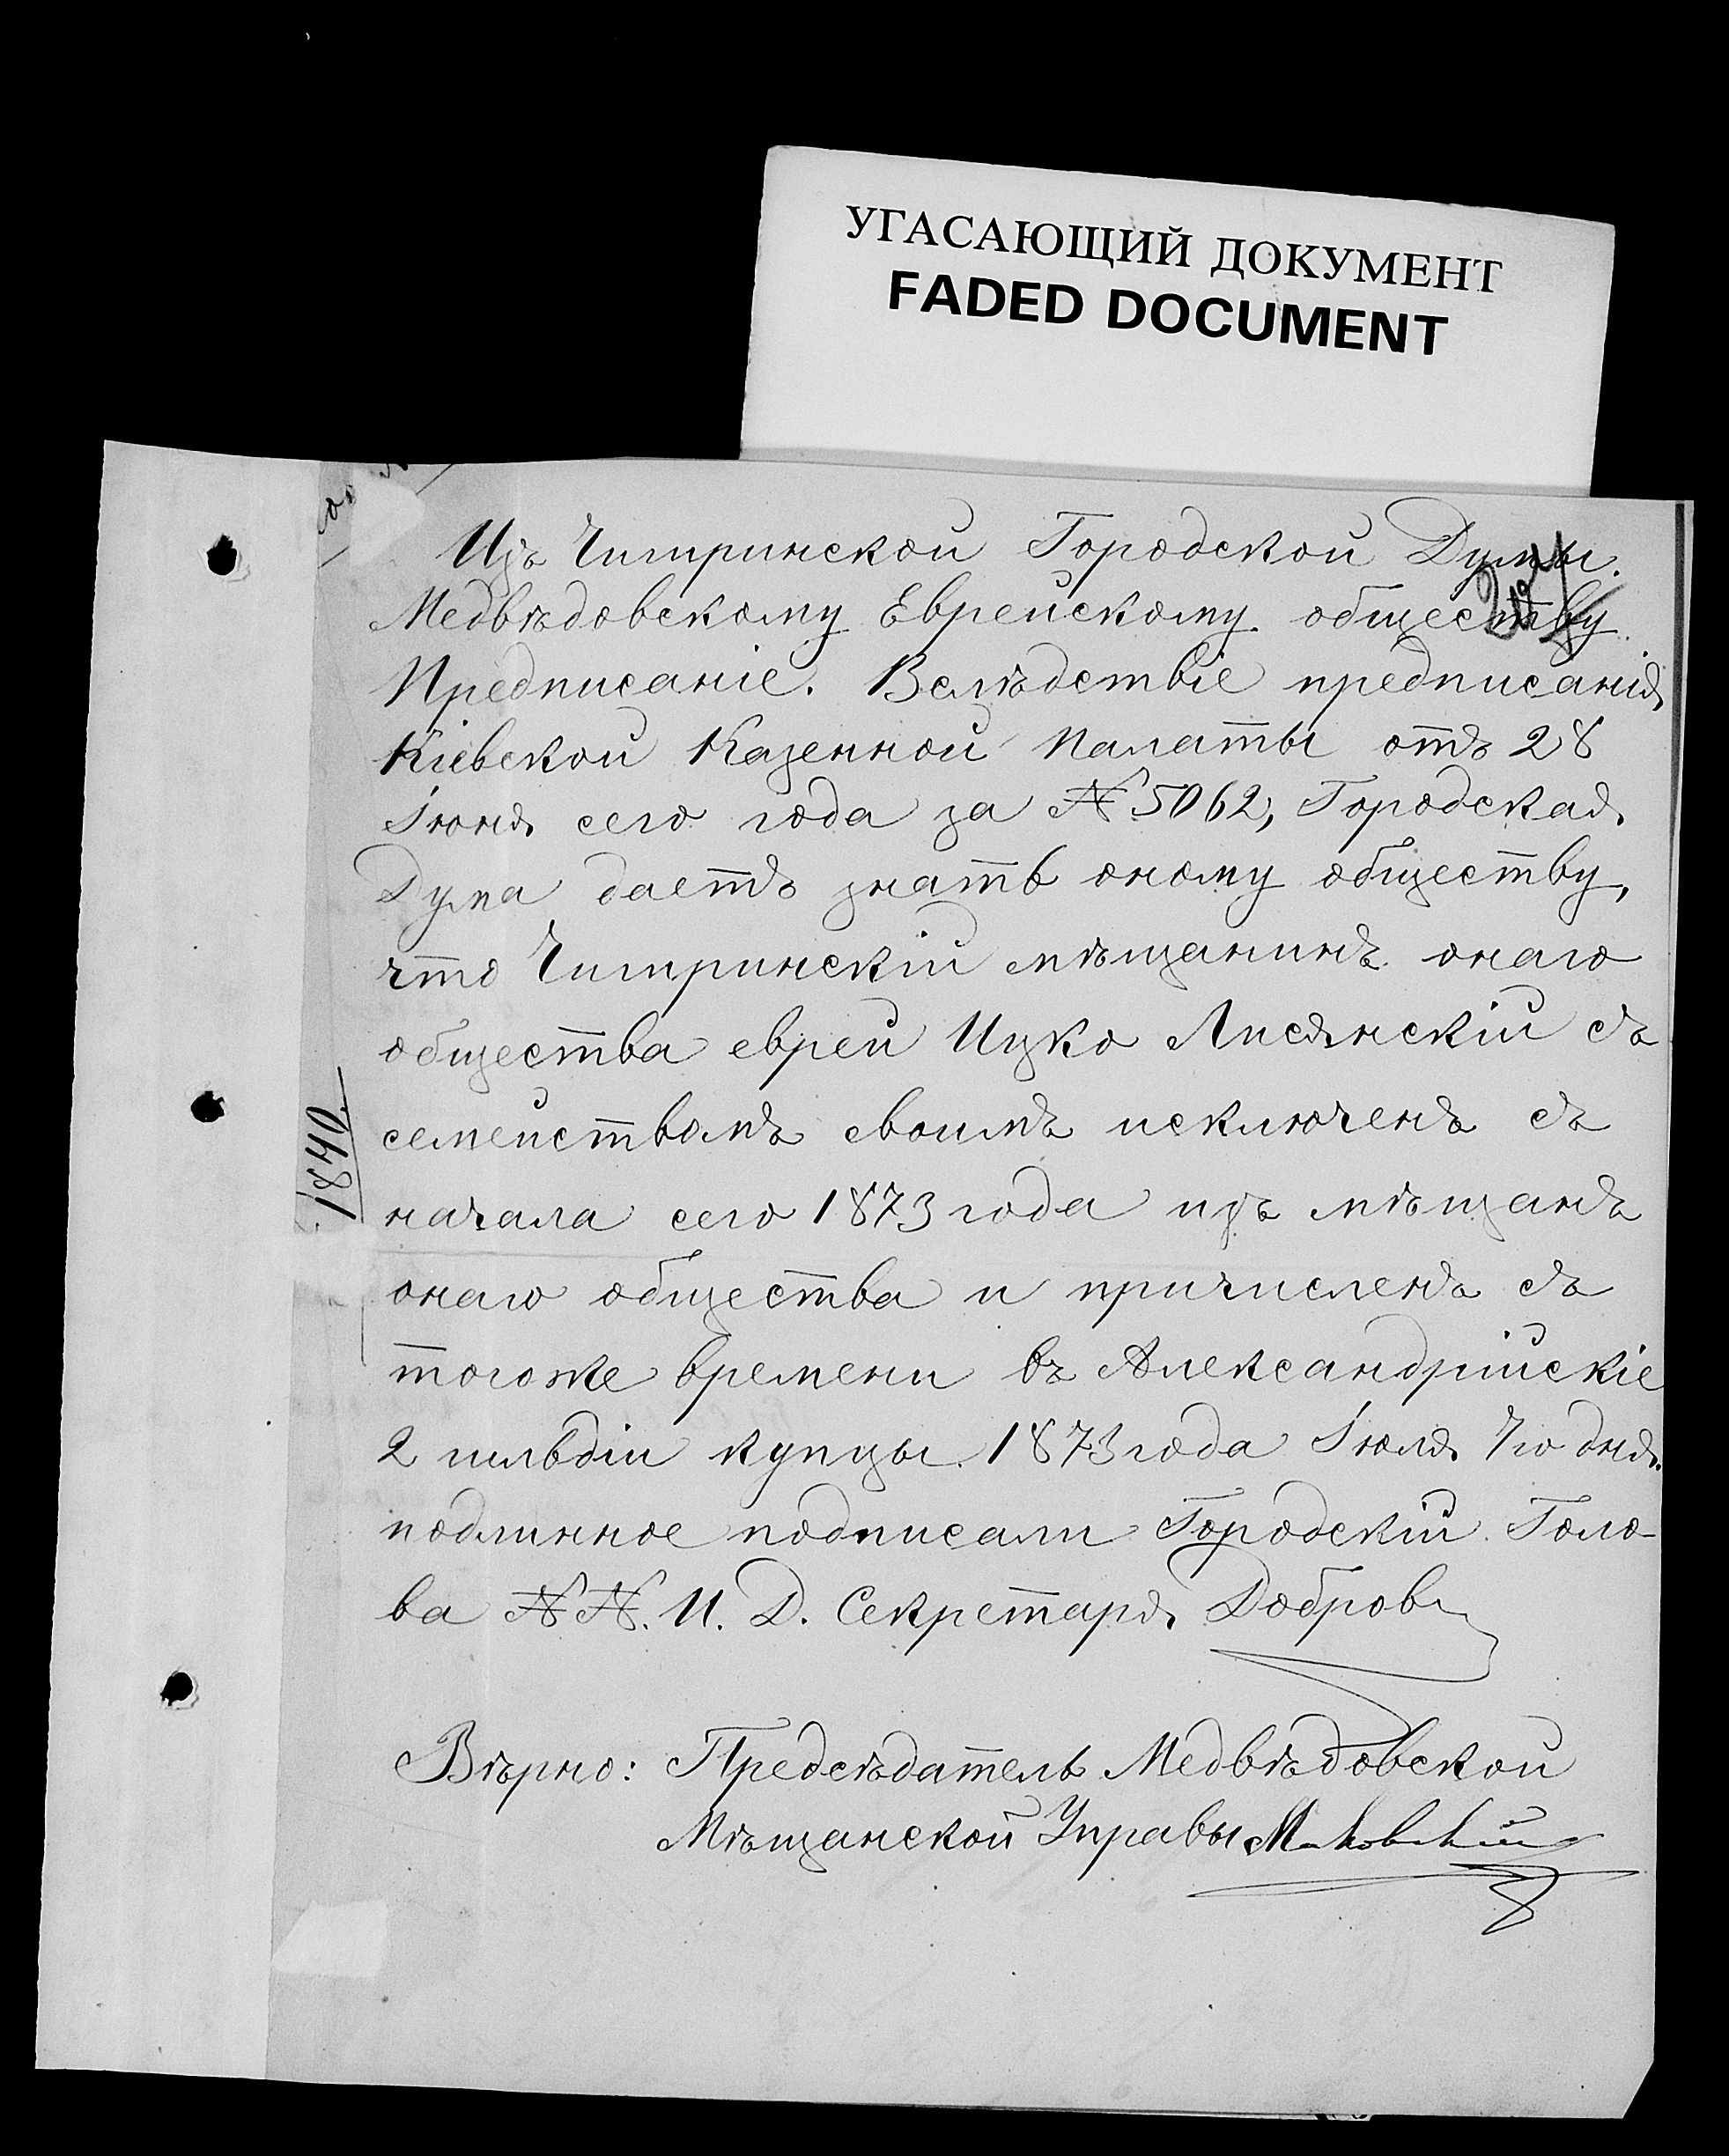 УГАСАЮЩИЙ ДОКУМЕНТ
FADED DOCUMENT
Изъ Чигринской Городской Думы.
Медвѣдовскому Еврейскому обществу
Предписаніе. Вслѣдствіе предписанія
Кіевской Казенной Палаты отъ 28
Іюня сего года за № 5062, Городская
Дума даетъ знать оному обществу,
что Чигринскій мѣщанинъ онаго
общества еврей Ицко Лисянскій съ
семействомъ своимъ исключенъ съ
начала сего 1873 года изъ мѣщанъ
онаго общества и причисленъ съ
тогоже времени въ Александрійскіе
2 гильдіи купцы. 1873 года Іюля 7го дня.
подлинное подписали Городскій Голо-
ва N N. И. Д. Секретаря Добров
Вѣрно: Предсѣдатель Медвѣдовской
Мѣщанской Управы
1840